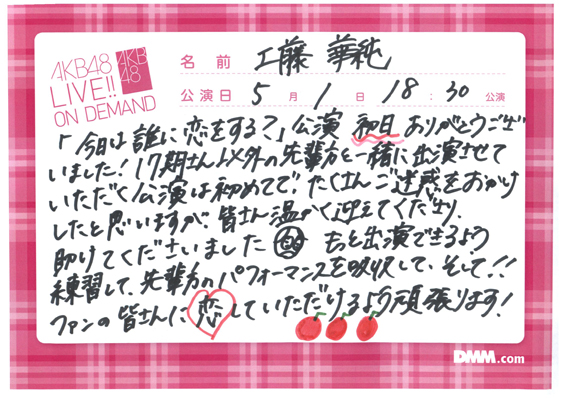 AKB48
LIVE!!
ON DEMAND
AKB
48
名前 工藤 華純
公演日 5月1日 18:30 公演
「今日は誰に恋をする?」公演 初日 ありがとうござ
いました!17期さん以外の先輩方と一緒に出演させて
いただく公演は初めてで、たくさんご迷惑をおかけ
したと思いますが、皆さん温かく迎えてくださり、
助けてくださいました もっと出演できるよう
練習して、先輩方のパフォーマンスを吸収して、そして!!
ファンの皆さんに恋していただけるよう頑張ります!
DMM.com